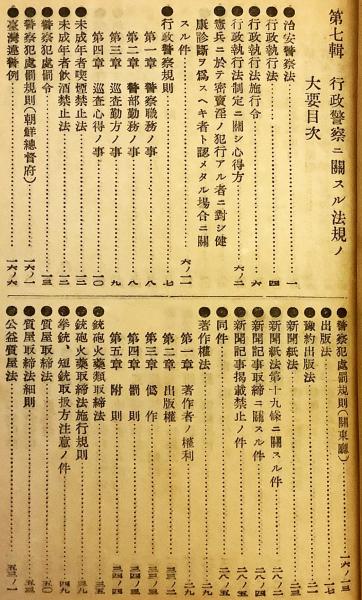 第七輯 行政警察ニ關スル法規ノ
大要目次
●治安警察法……一
●行政執行法……四
●行政執行法施行令……六
●行政執行法制定ニ關シ心得方……六ノ二
●憲兵ニ於テ密賣淫ノ犯行アル者ニ對シ健
康診斷ヲ爲スヘキ者ト認メタル場合ニ關
スル件……六ノ二
●行政警察規則……七
第一章 警察職務ノ事……七
第二章 警部勤務ノ事……八
第三章 巡査勤方ノ事……九
第四章 巡査心得ノ事……一〇
●未成年者喫煙禁止法……一二
●未成年者飲酒禁止法……一二
●警察犯處罰令……一三
●警察犯處罰規則(朝鮮總督府)……一六ノ一
●臺灣違警例……一六ノ六
●警察犯處罰規則(關東廳)……一六ノ一三
●出版法……一七
●豫約出版法……二〇
●新聞紙法……二三
●新聞紙法第十九條ニ關スル件……二八ノ五
●新聞記事取締ニ關スル件……二八ノ五
●新聞記事掲載禁止ノ件……二八ノ五
●同件……二八ノ六
●著作權法……二九
第一章 著作者ノ權利……二九
第二章 出版權……三三ノ二
第三章 僞作……三三ノ三
第四章 罰則……三四ノ二
第五章 附則……三四ノ三
●銃砲火藥類取締法……三五
●銃砲火藥取締法施行規則……三九
●拳銃、短銃取扱方注意ノ件……四九
●質屋取締法……五〇
●質屋取締法細則……五三
●公益質屋法……五三ノ一